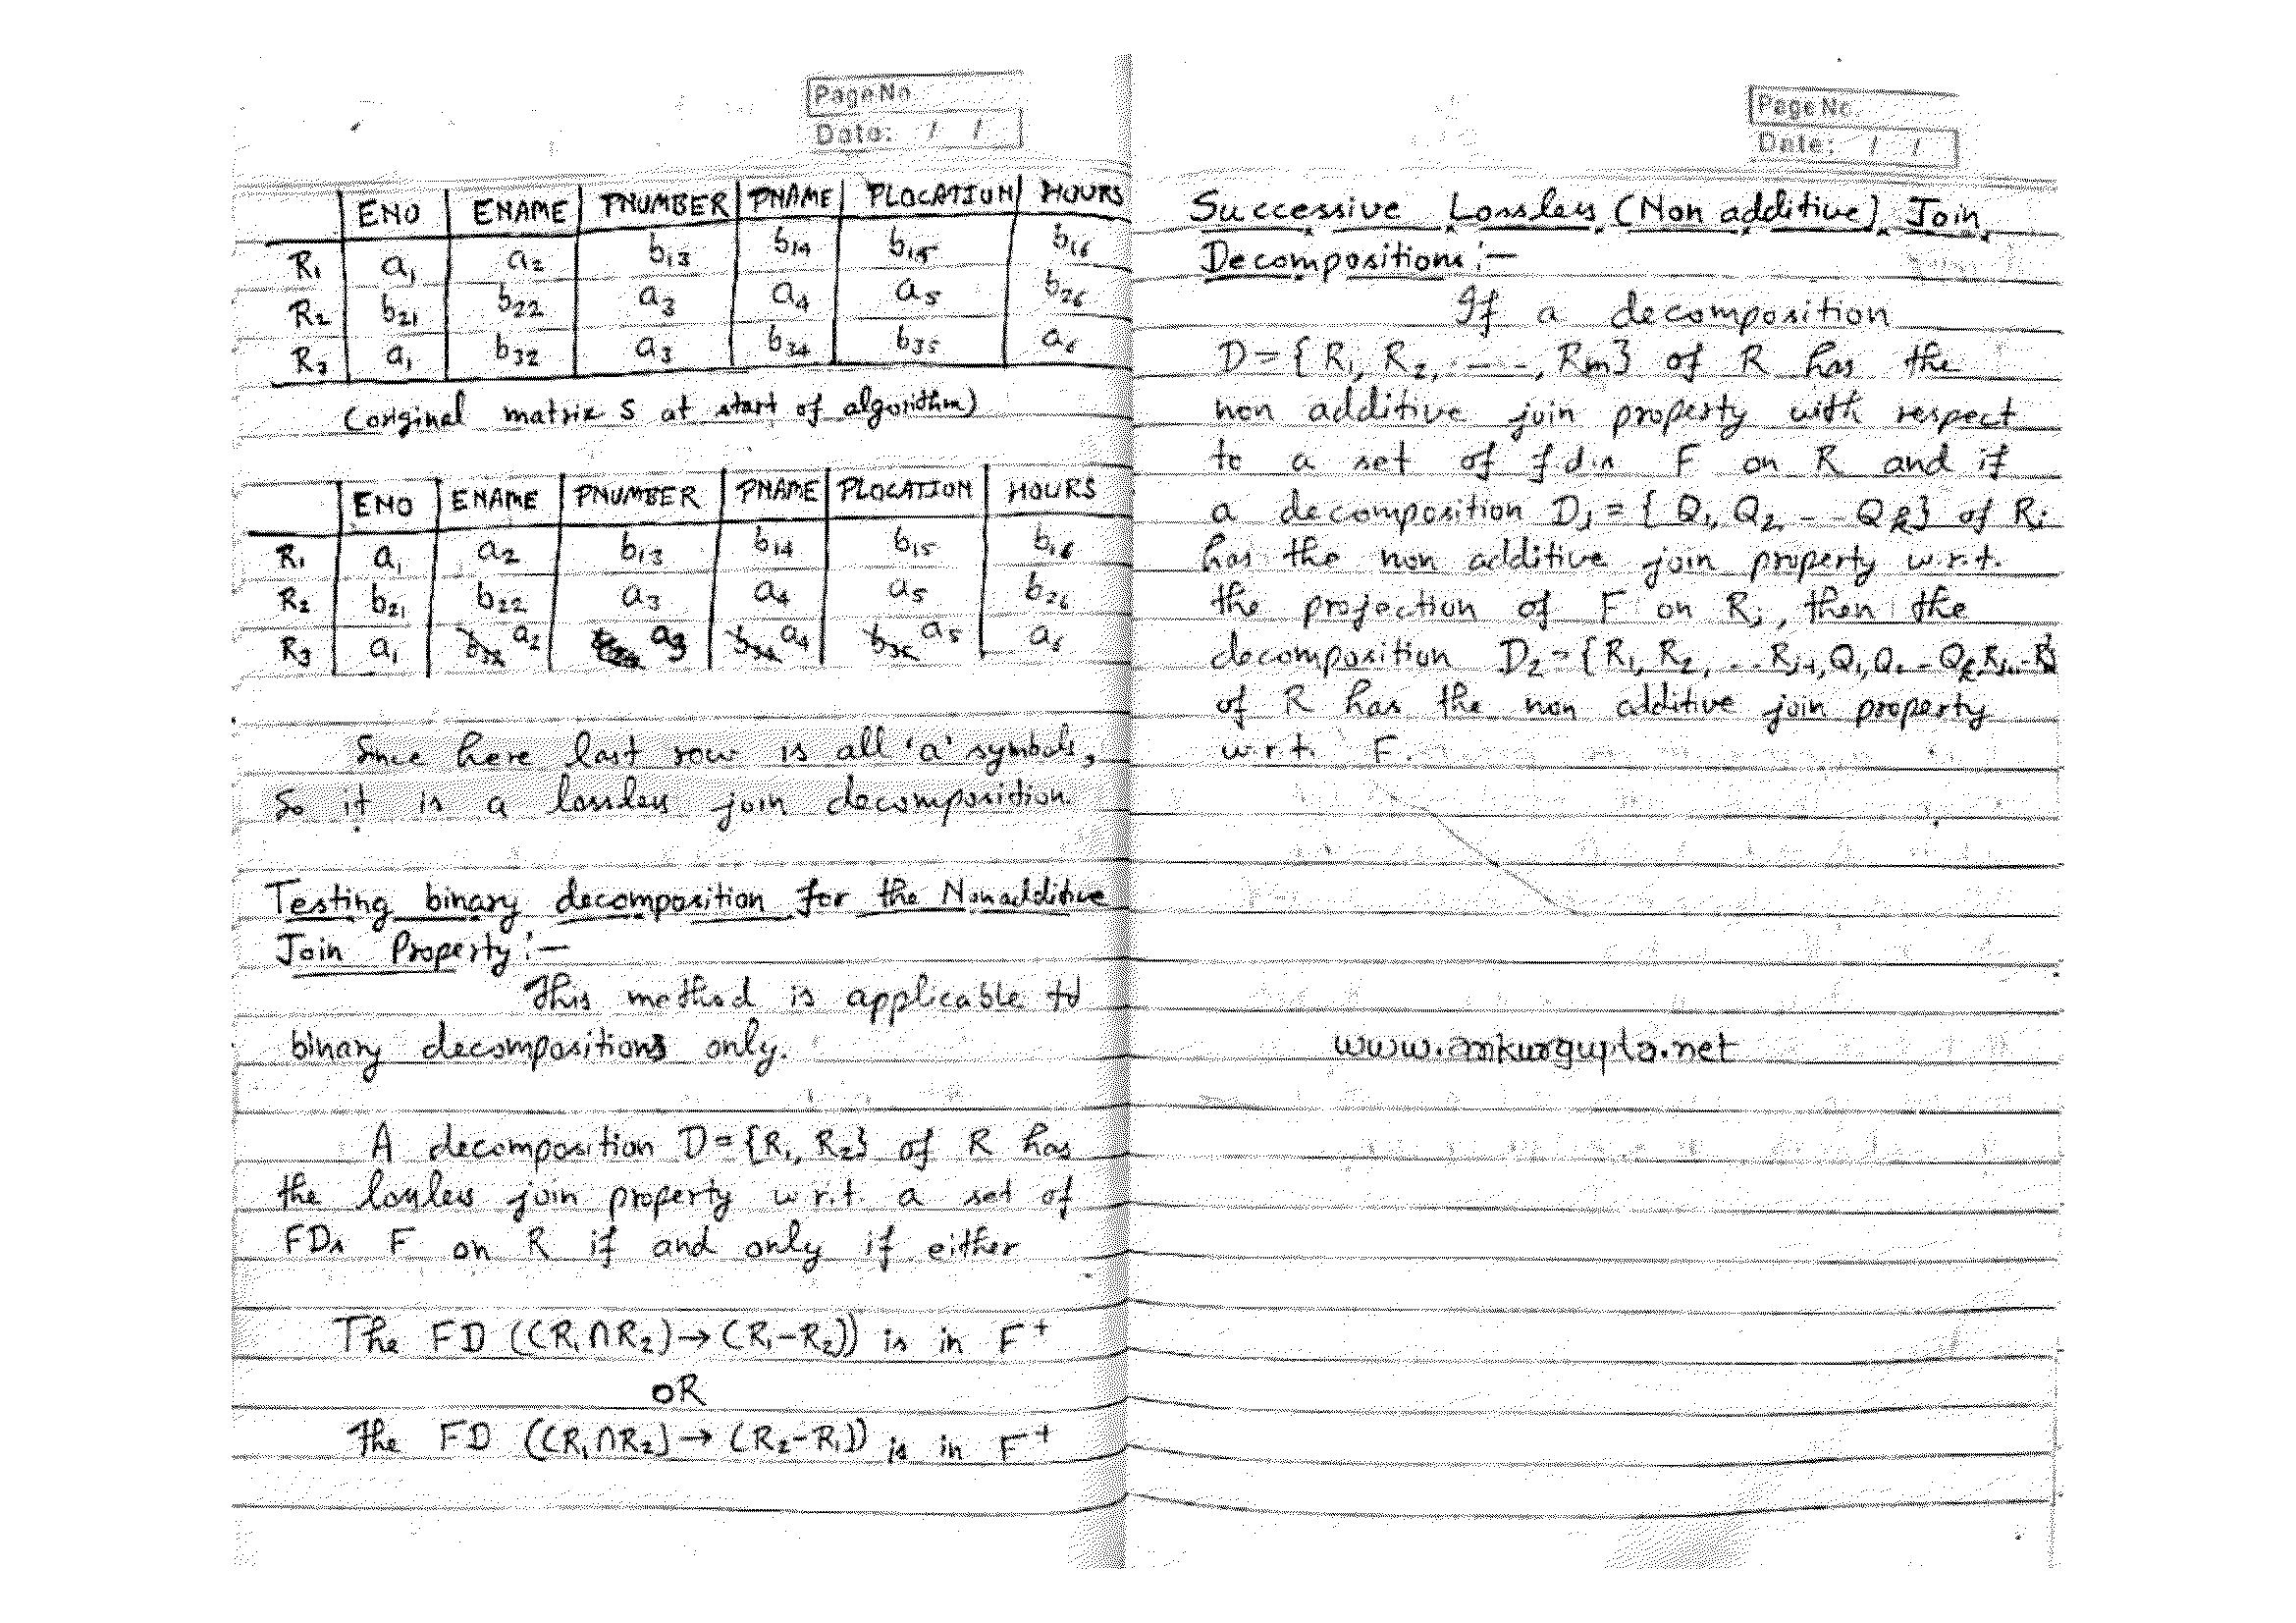 Page No.
Date: / /
ENO ENAME PNUMBER PNAME PLOCATION HOURS
R₁ a₁ a₂ b₁₃ b₁₄ b₁₅ b₁₆
R₂ b₂₁ b₂₂ a₃ a₄ a₅ b₂₆
R₃ a₁ b₃₂ a₃ b₃₄ b₃₅ a₆
(original matrix S at start of algorithm)
ENO ENAME PNUMBER PNAME PLOCATION HOURS
R₁ a₁ a₂ b₁₃ b₁₄ b₁₅ b₁₆
R₂ b₂₁ b₂₂ a₃ a₄ a₅ b₂₆
R₃ a₁ b₃₂ a₂ a₃ b₃₄ a₄ b₃₅ a₅ a₆
Since here last row is all 'a' symbols,
So it is a lossless join decomposition.
Testing binary decomposition for the Nonadditive
Join Property:—
This method is applicable to
binary decompositions only.
A decomposition D={R₁, R₂} of R has
the lossless join property w.r.t. a set of
FDs F on R if and only if either
The FD ((R₁∩R₂)→(R₁-R₂)) is in F⁺
OR
The FD ((R₁∩R₂)→(R₂-R₁)) is in F⁺
Page No.
Date: / /
Successive Lossless (Non additive) Join
Decomposition:—
If a decomposition
D={R₁, R₂, ----, Rm} of R has the
non additive join property with respect
to a set of f.d.s F on R and if
a decomposition Dⱼ={Q₁, Q₂ -- Qk} of Rᵢ
has the non additive join property w.r.t.
the projection of F on Rᵢ, then the
decomposition D₂={R₁, R₂, .. Rᵢ₋₁, Q₁, Q₂ -- Qk
of R has the non additive join property
w.r.t. F.
www.ankurgupta.net